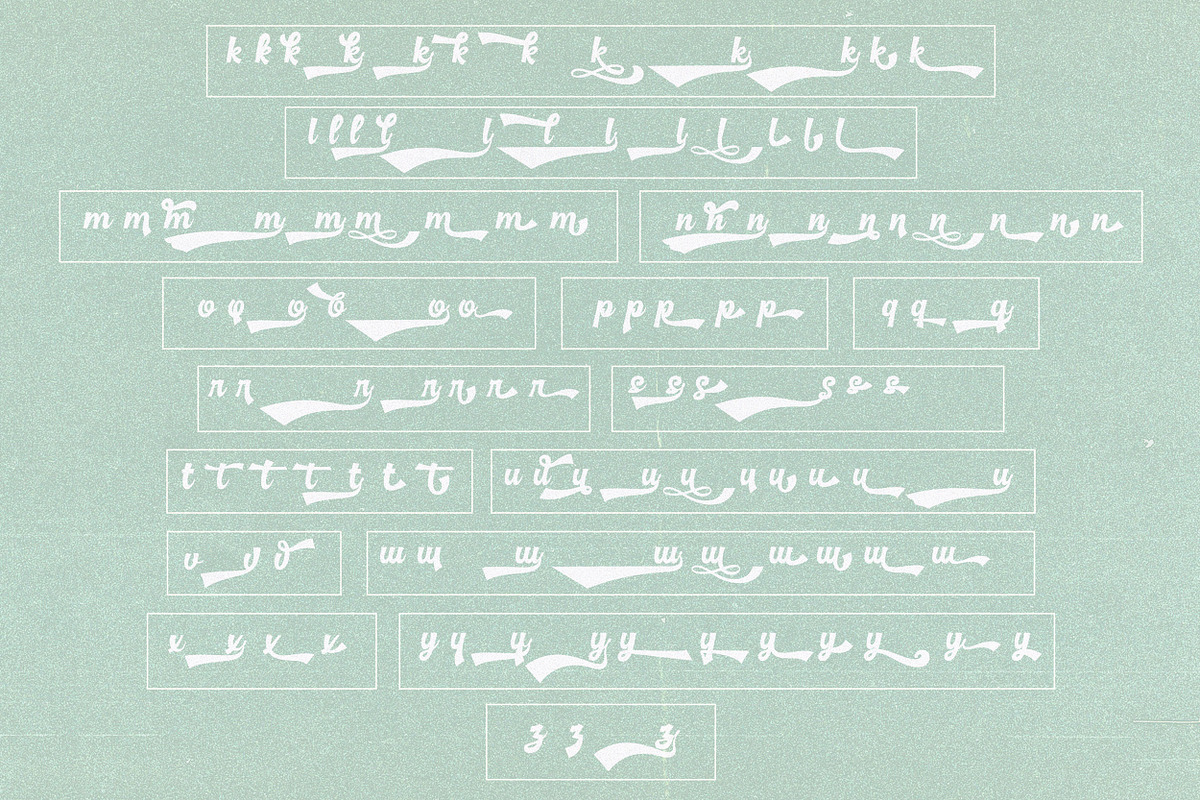 k k k k k k k k k k k k
l l l l l l l l l l l l
m m m m m m m m m
n n n n n n n n n n
o o o o o o
p p p p p
q q q
r r r r r r r
s s s s s s
t t t t t t t
u u u u u u u u u u
v v v
w w w w w w w w w
x x x x
y y y y y y y y y y y
z z z